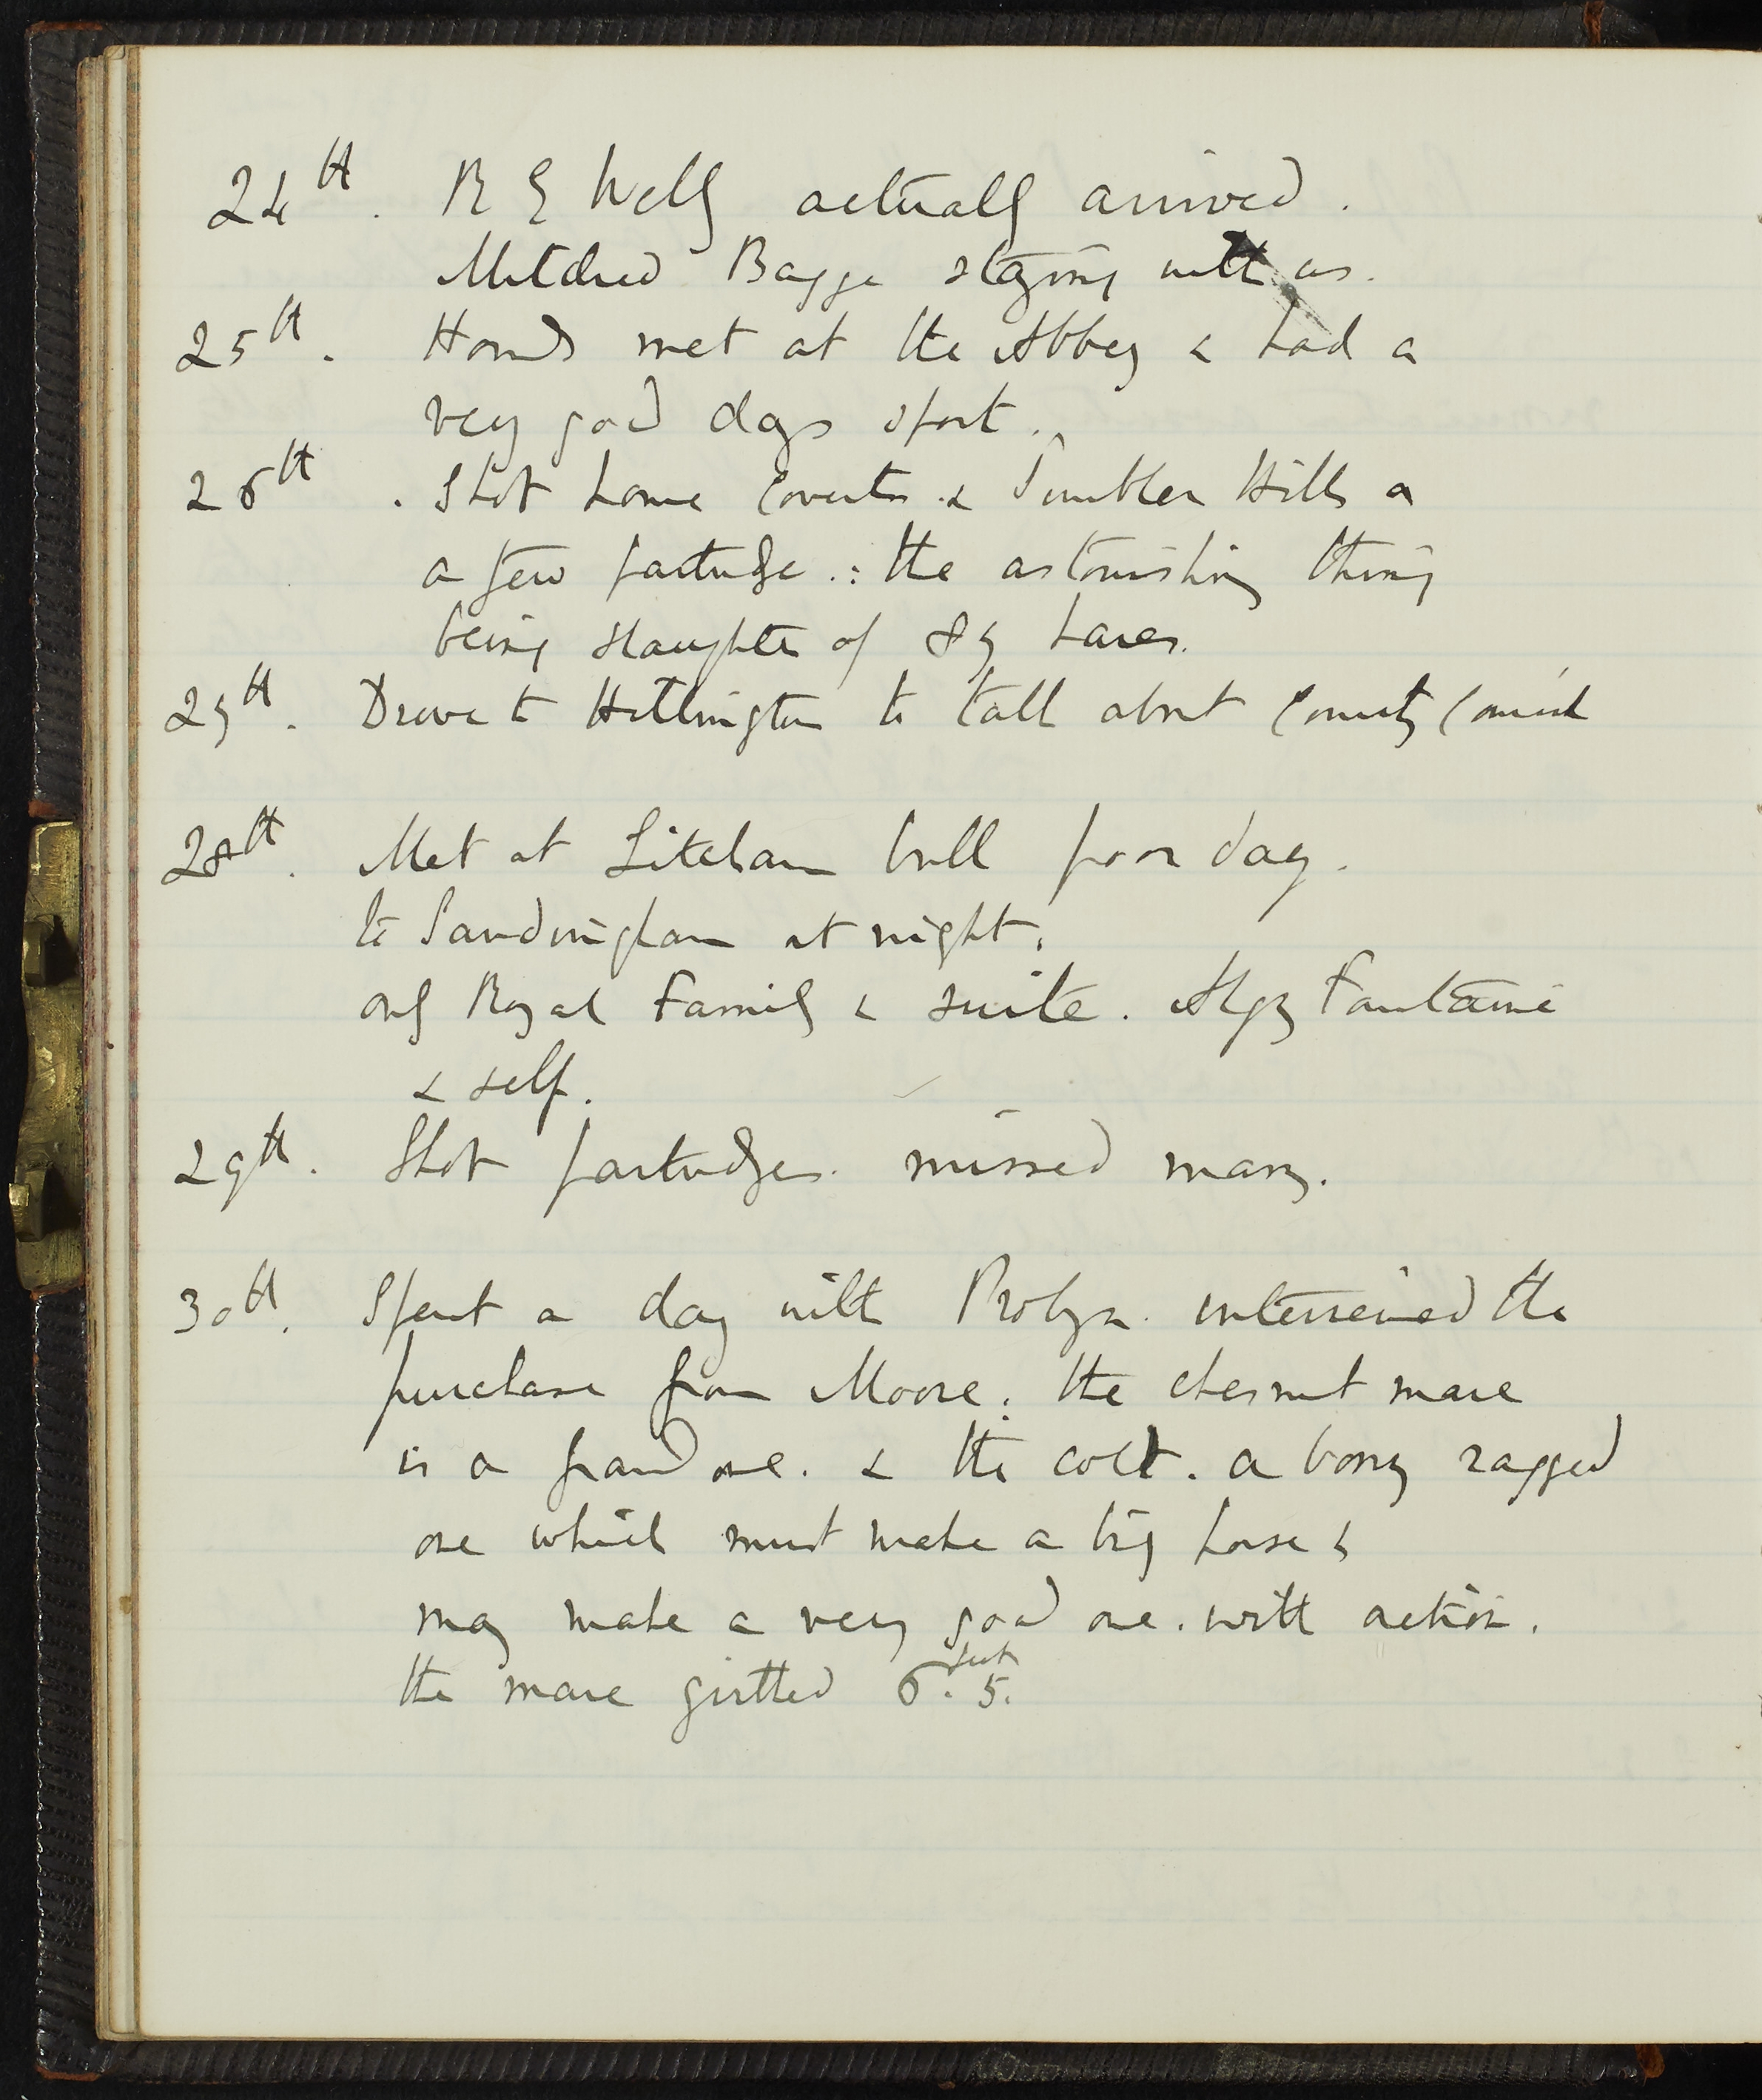 24th. R E Wells actually arrived.
Mildred Bagge staying with us.
25th. Hounds met at the Abbey & had a
very good days sport.
26th. Shot home Coverts & Tumbler Hills a
a few partridge.: the astonishing thing
being slaughter of 87 hares.
27th. Drove to Hillington to talk about County Council
28th. Met at Litcham bull poor day.
to Sandringham at night.
only Royal Family & suite. Algy Fountaine
& self.
29th. Shot partridges. missed many.
30th. Spent a day with Probyn. interviewed the
purchase from Moore. the chesnut mare
is a grand one. & the colt. a bony ragged
one which must make a big horse &
may make a very good one. with action.
the mare girthed 6. feet 5.